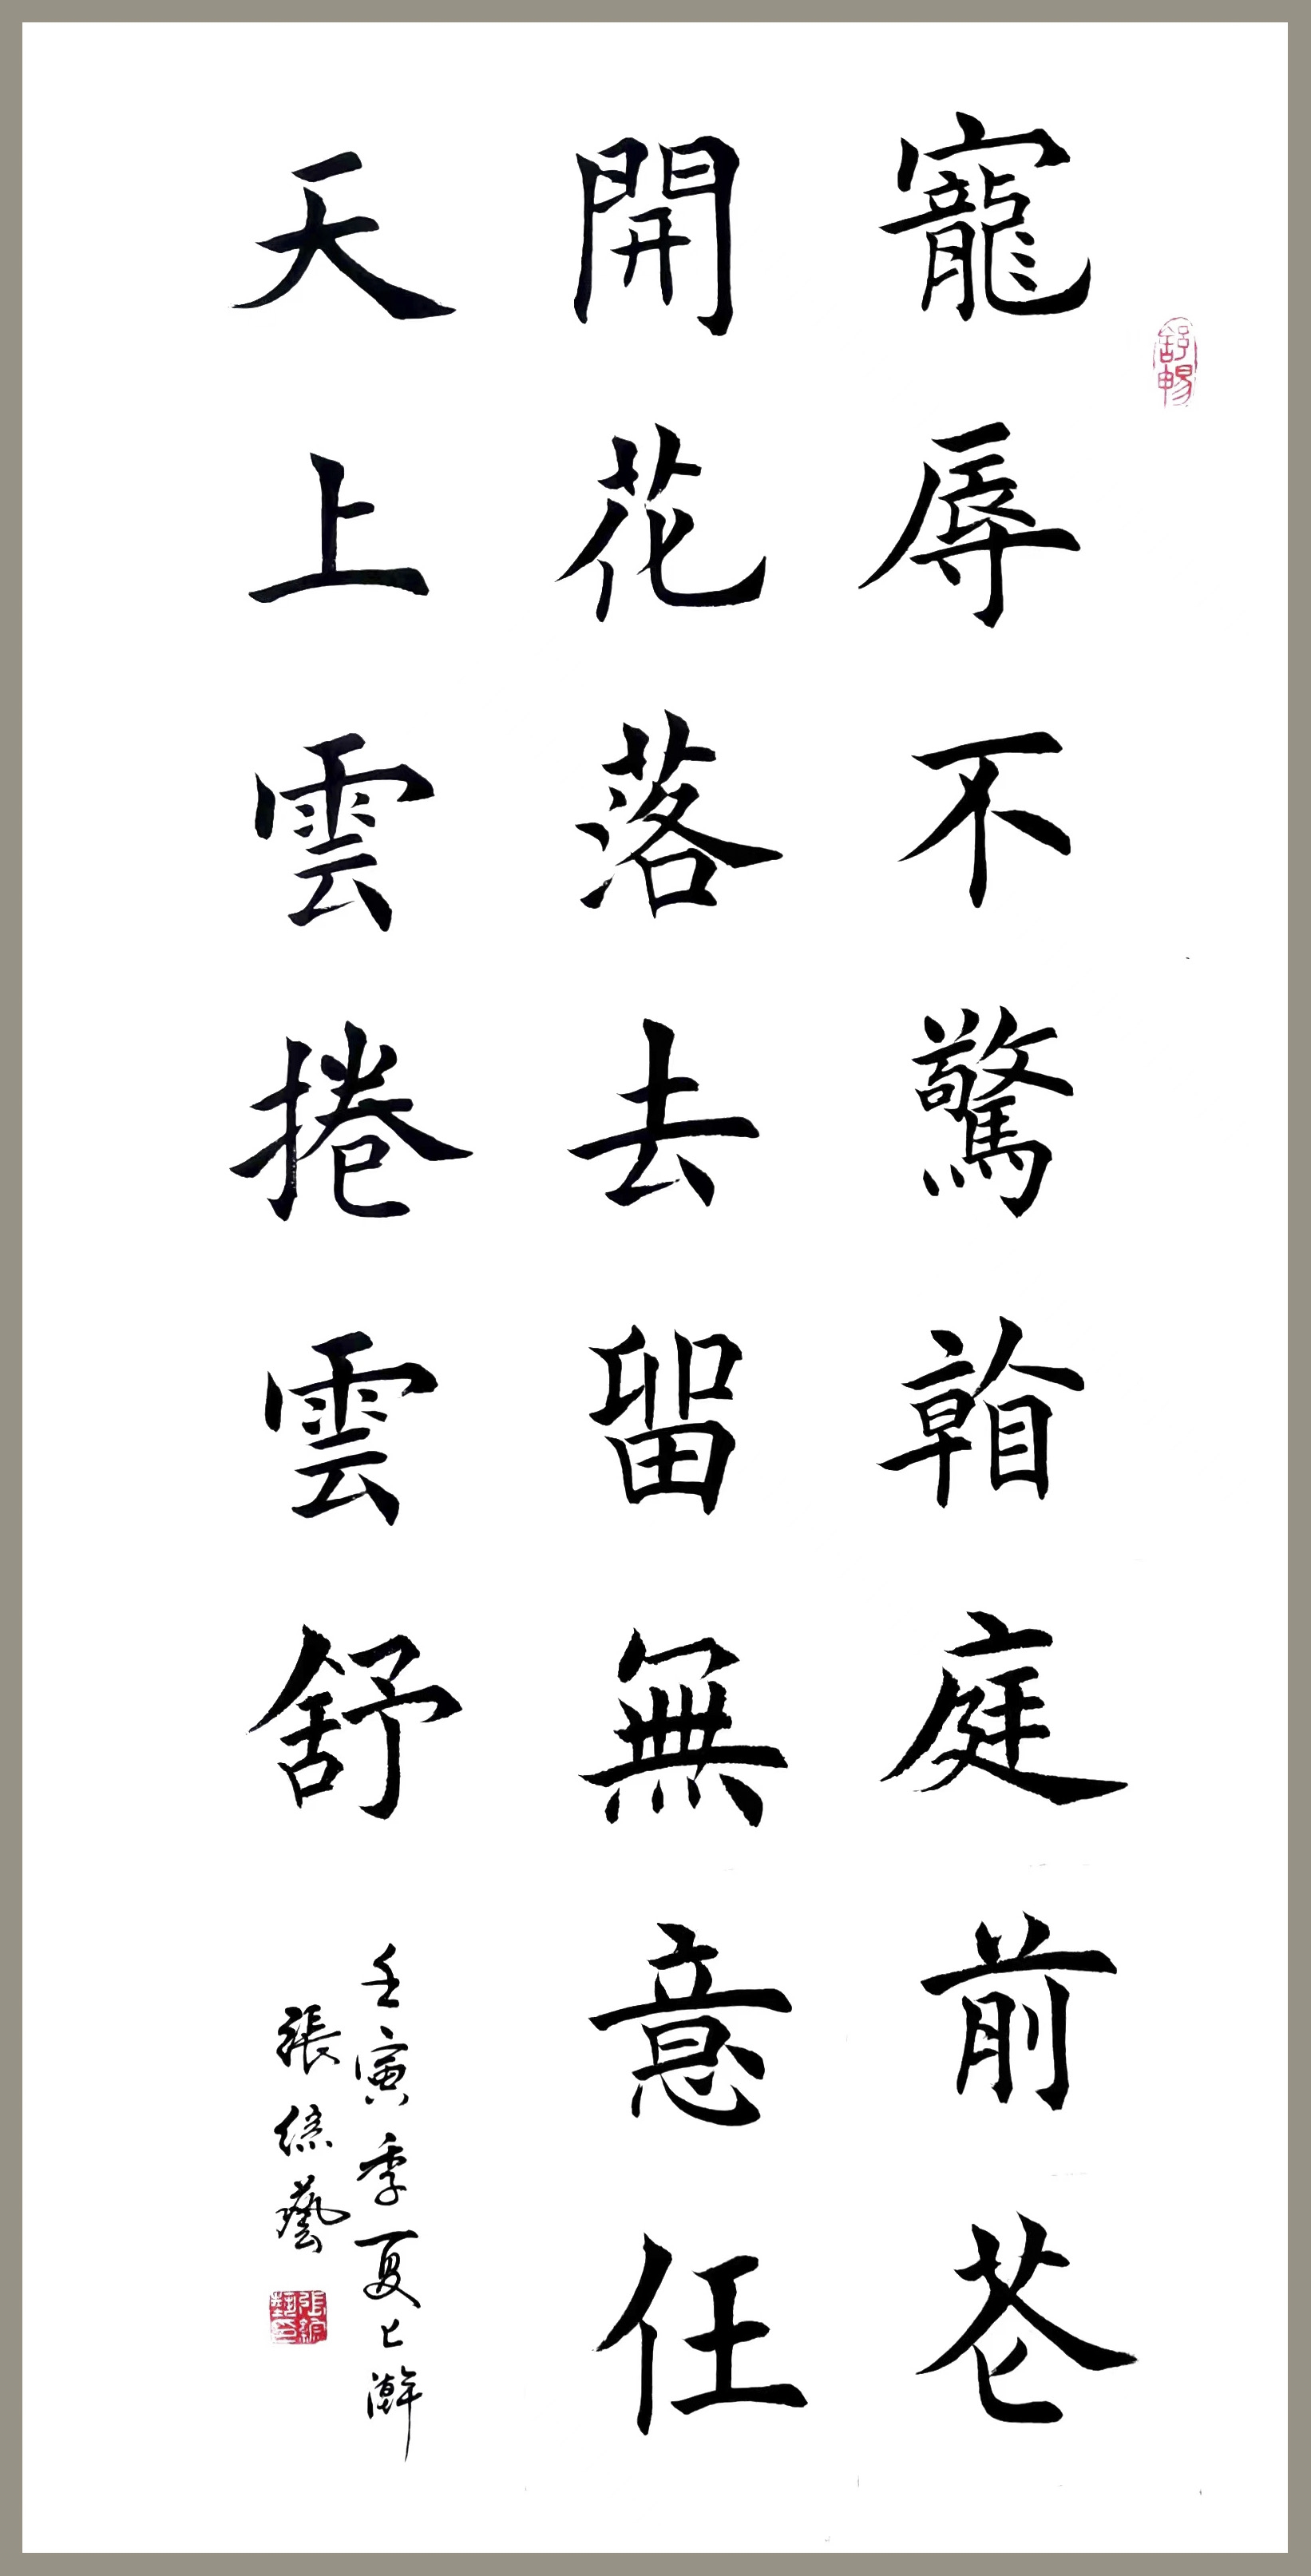 寵辱不驚䀵庭前花
開花落去留無意任
天上雲捲雲舒
壬寅季夏上澣
張綜藝
舒暢